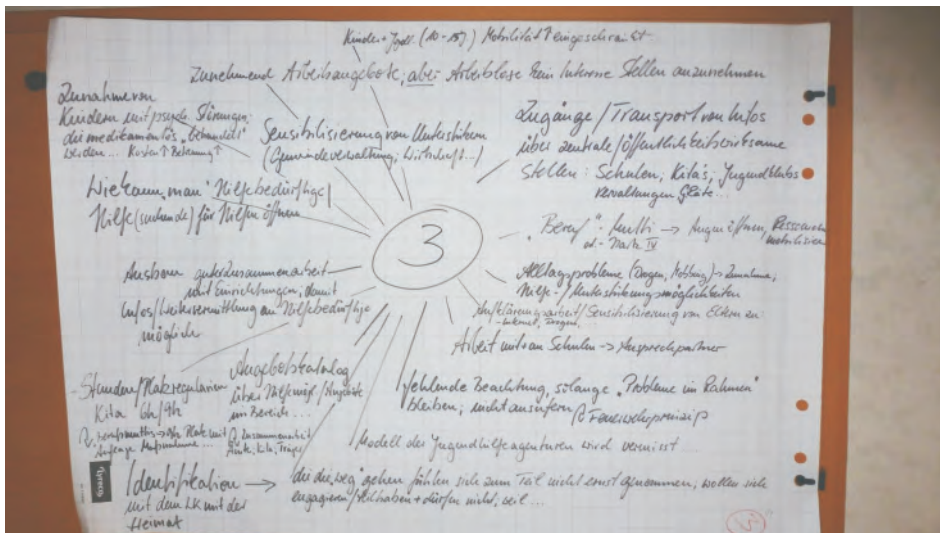 Kinder + Jgdl. (10-15J) Mobilität eingeschränkt
Zunehmend Arbeitsangebote, aber Arbeitslose kein Interesse Stellen anzunehmen
Zunahme von
Kindern mit psych. Störungen,
die medikamentös "behandelt"
werden... Kosten ↑ Betreuung ↑
Sensibilisierung von Unterstützern
(Gemeindeverwaltung, Wirtschaft...)
Zugänge / Transport von Infos
über zentrale / öffentlichkeitswirksame
Stellen: Schulen, Kita's, Jugendklubs
Verwaltungen
Wie kann "man" Hilfebedürftige /
Hilfe(suchende) für Hilfen öffnen
3
"Beruf" - Multi → Augen öffnen, Ressourcen
mobilisieren
od. Hartz IV
Ausbau guter Zusammenarbeit
mit Einrichtungen, damit
Infos / Weitervermittlung an Hilfebedürftige
möglich
Alltagsprobleme (Drogen, Mobbing) → Zunahme,
Hilfe- / Unterstützungsmöglichkeiten
Aufklärungsarbeit / Sensibilisierung von Eltern zu
- Internet, Drogen,
Arbeit mit + an Schulen → Ansprechpartner
- Stunden / Platzregularien
Kita 6h/9h
Angebotskatalog
über Hilfemögl. / Angebote
im Bereich...
Zusammenarbeit
Ämter, Kita, Träger
fehlende Beachtung, solange "Probleme im Rahmen"
bleiben, nicht ausufern
Feuerwehrprinzip
Modell der Jugendhilfeagenturen wird vermisst
Identifikation →
mit dem LK mit der
Heimat
die, die "weg" gehen fühlen sich zum Teil nicht ernst genommen, wollen sich
engagieren / teilhaben + dürfen nicht, weil...